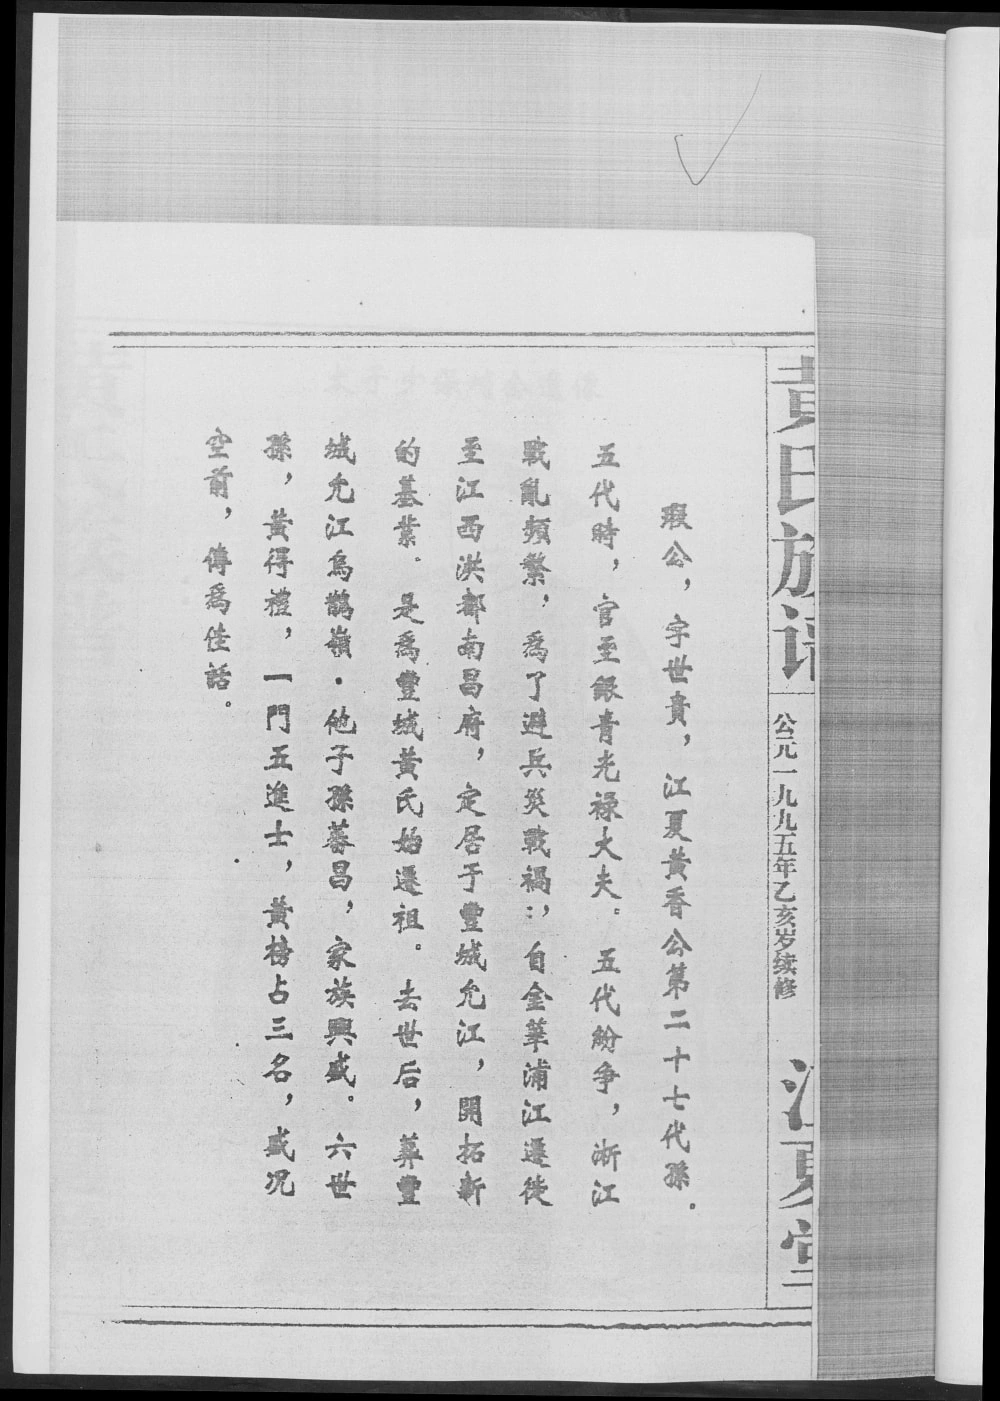 黄氏族谱
公元一九九五年乙亥岁续修
江夏堂
瑕公，字世貴，江夏黄香公第二十七代孫.
五代時，官至銀青光禄大夫。五代紛争，浙江
戰亂頻繁，爲了避兵災戰禍：，自金華浦江遷徙
至江西洪都南昌府，定居于豐城允江，開拓新
的基業。是爲豐城黄氏始遷祖。去世后，葬豐
城允江烏鵲嶺．他子孫蕃昌，家族興盛。六世
孫，黄得禮，一門五進士，黄榜占三名，盛况
空前，傳爲佳話。